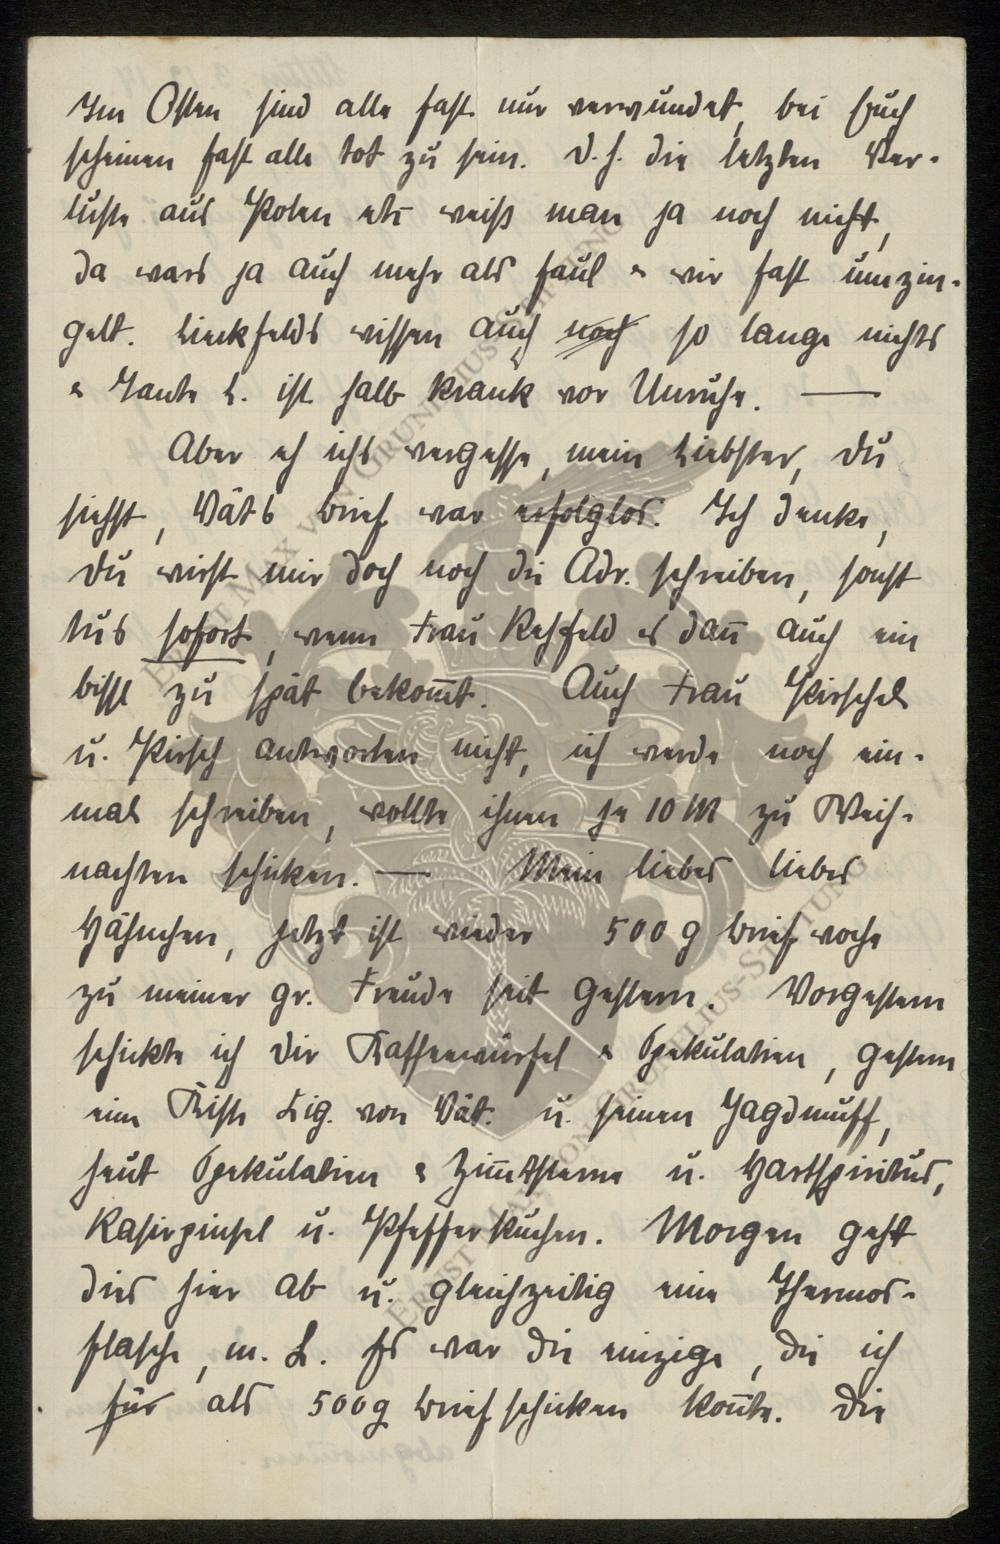 Im Osten sind alle fast nur verwundet, bei Euch
scheinen fast alle tot zu sein. D. h. die letzten Ver-
luste aus Polen etc weiß man ja noch nicht,
da wars ja auch mehr als faul & wir fast umzin-
gelt. Lieckfelds wissen auch noch so lange nichts
& Tante L. ist halb krank vor Unruhe. —
Aber eh ichs vergesse, mein Liebster, Du
siehst, Väts Brief war erfolglos. Ich denke,
Du wirst mir doch noch die Adr. schreiben, sonst
tus sofort, wenn Frau Rehfeld es dan̄ auch ein
bissl zu spät bekom̄t. Auch Frau Pirschel
u. Pirsch antworten nicht, ich werde noch ein-
mal schreiben, wollte ihnen je 10 M zu Weih-
nachten schicken. — Mein liebes liebes
Hähnchen, jetzt ist wieder 500 g Briefwoche
zu meiner gr. Freude seit gestern. Vorgestern
schickte ich Dir Kaffeewürfel & Spekulatien, gestern
eine Kiste Zig. von Vät. u. seinen Jagdmuff,
heut Spekulatien & Zim̄tsterne u. Hartspiritus,
Rasirpinsel u. Pfefferkuchen. Morgen geht
dies hier ab u. gleichzeitig eine Thermos-
flasche, m. L. Es war die einzige, die ich
für als 500 g Brief schicken kon̄te. Die
ERNST MAX VON GRUNELIUS-STIFTUNG
ERNST MAX VON GRUNELIUS-STIFTUNG